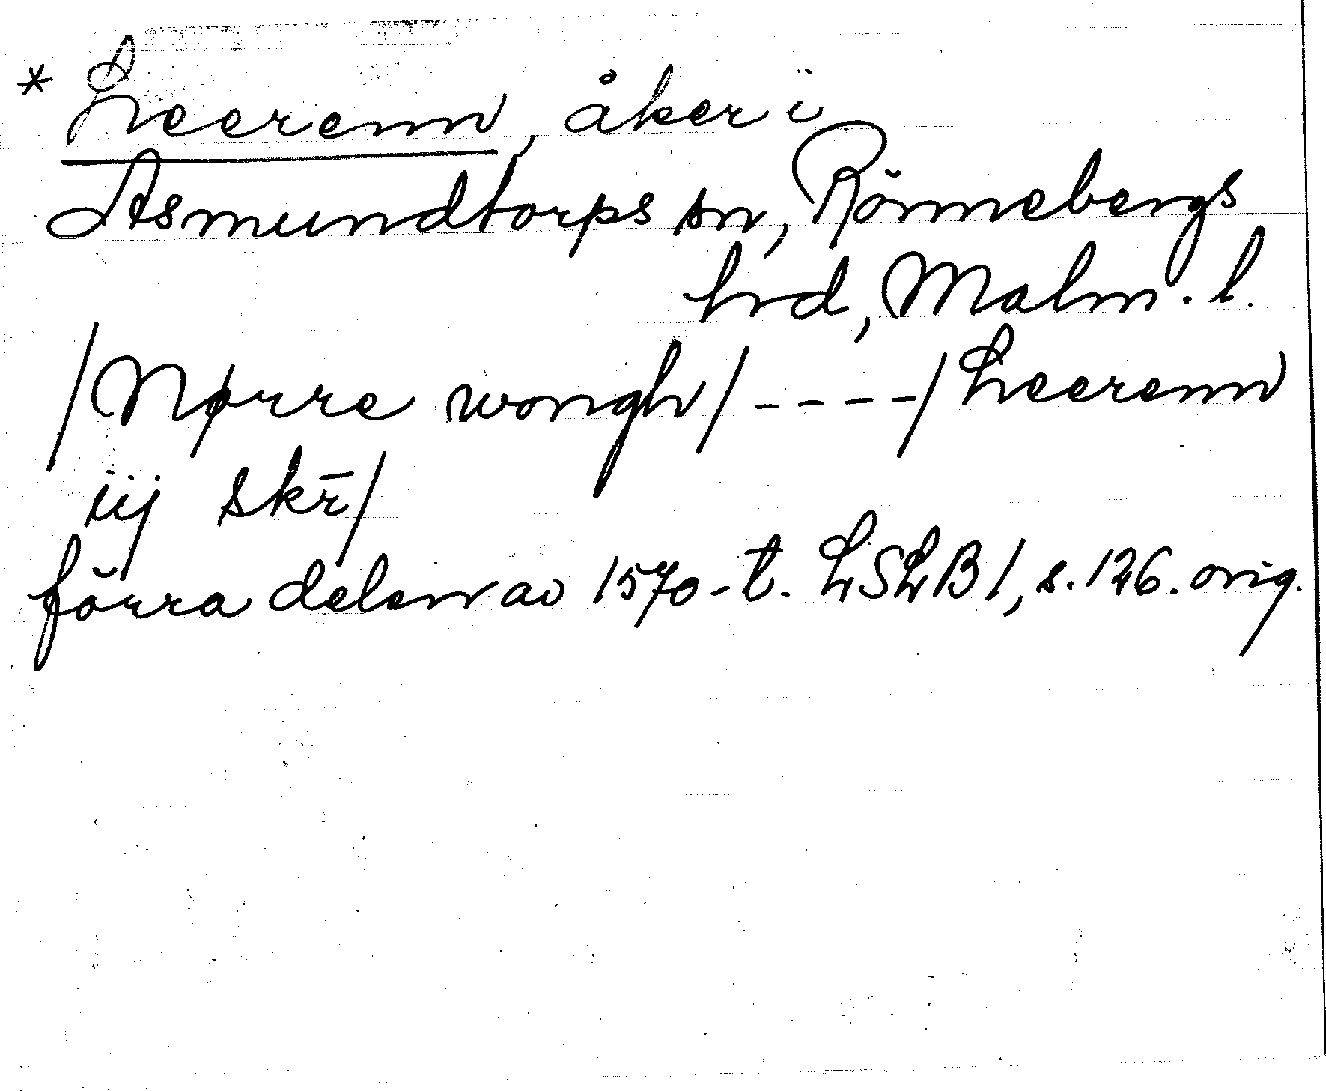 * Leerenn, åker i
Asmundtorps sn, Rönnebergs
hrd, Malm. l.
/Nørre wongh/ - - - - / Leerenn
iij skr̄/
förra delen av 1570-t. LSLB 1, s. 126. orig.